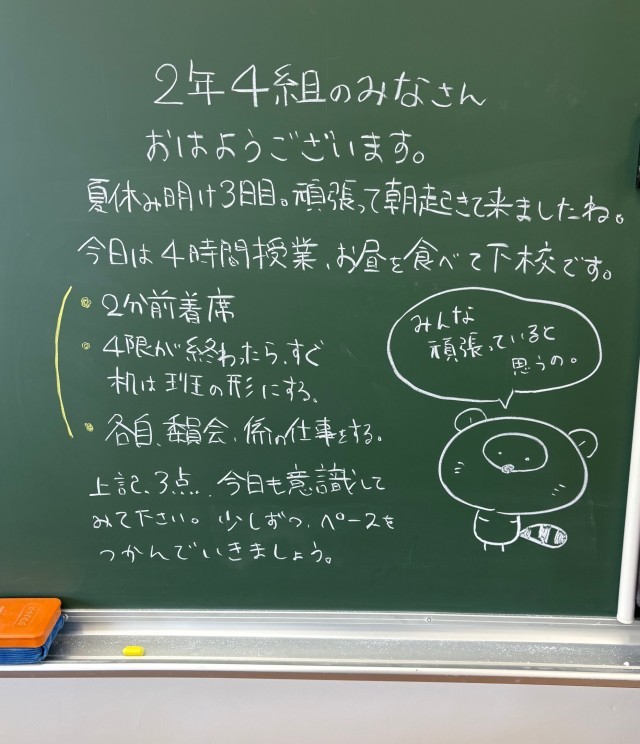 2年4組のみなさん
おはようございます。
夏休み明け3日目。頑張って朝起きて来ましたね。
今日は4時間授業、お昼を食べて下校です。
• 2分前着席
• 4限が終わったら、すぐ
机は班の形にする、
• 各自、委員会、係の仕事をする。
上記、3点、今日も意識して
みて下さい。少しずつ、ペースを
つかんでいきましょう。
みんな
頑張っていると
思うの。